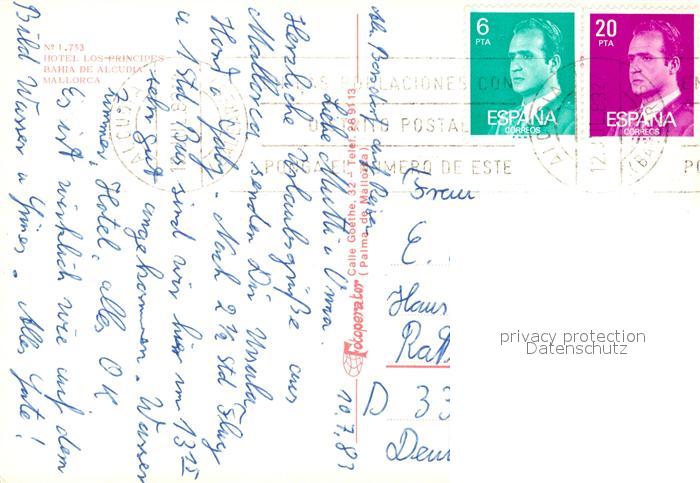 Nº 1.753
HOTEL LOS PRINCIPES
BAHIA DE ALCUDIA
MALLORCA
10.7.83
Liebe Mutti u. Oma.
Herzliche Urlaubsgrüße aus
Mallorca senden Dir Ursula
Nach 2½ Std Flug
u 1 Std Bus sind wir hier um 13 15
sehr gut angekommen. Wasser
Zimmer, Hotel, alles OK
Es ist wirklich wie auf dem
Bild Wasser u Grünes. Alles Gute!
Fotoperator Calle Goethe, 32 – Teléf. 28 91 13
(Palma de Mallorca)
6
PTA
ESPAÑA
CORREOS
20
PTA
ESPAÑA
CORREOS
POBLACIONES CON
POSTAL
NUMERO DE ESTE
Frau
E.
Haus
D 33
privacy protection
Datenschutz